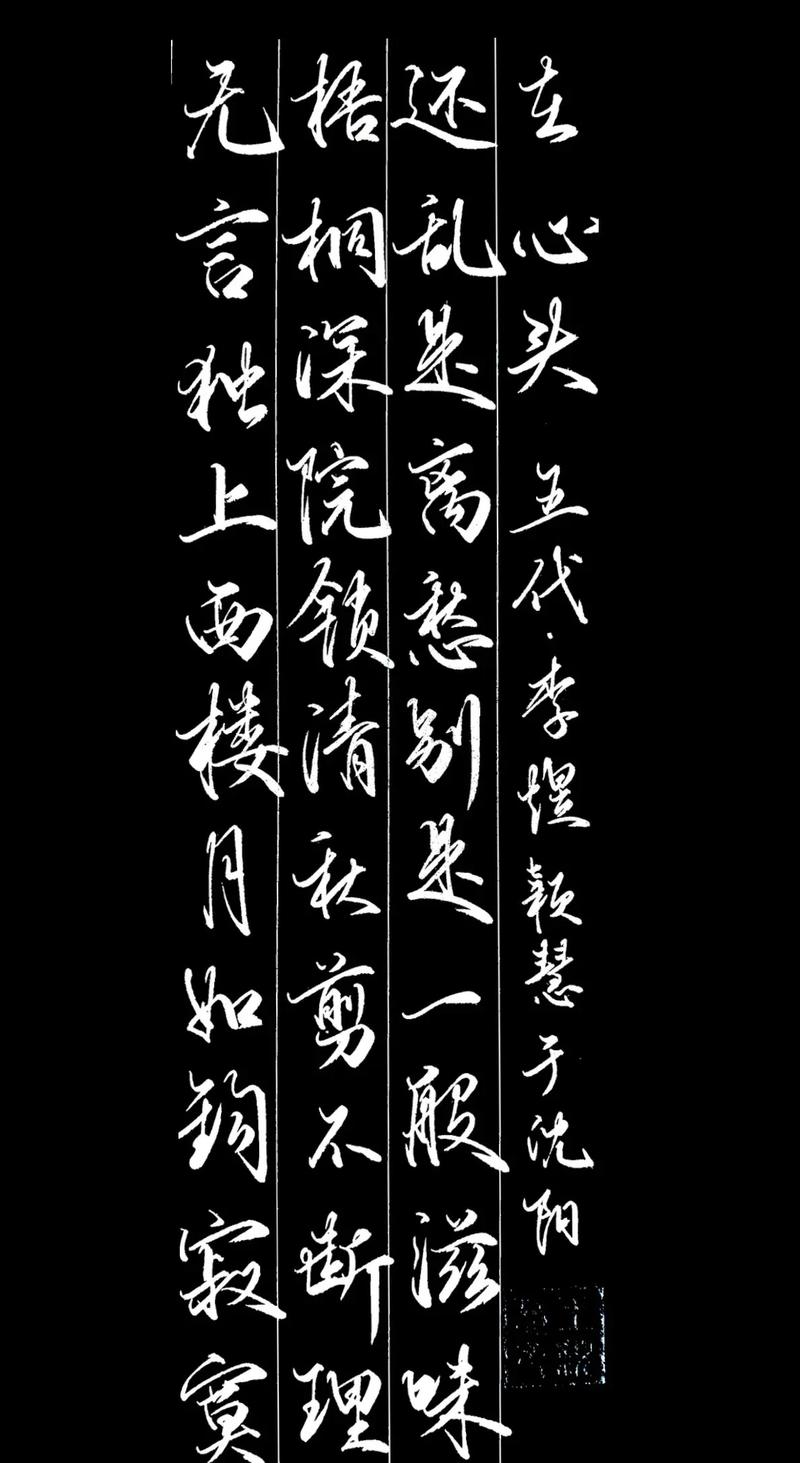 无言独上西楼月如钩寂寞
梧桐深院锁清秋剪不断理
还乱是离愁别是一般滋味
在心头 五代·李煜 颖慧于沈阳